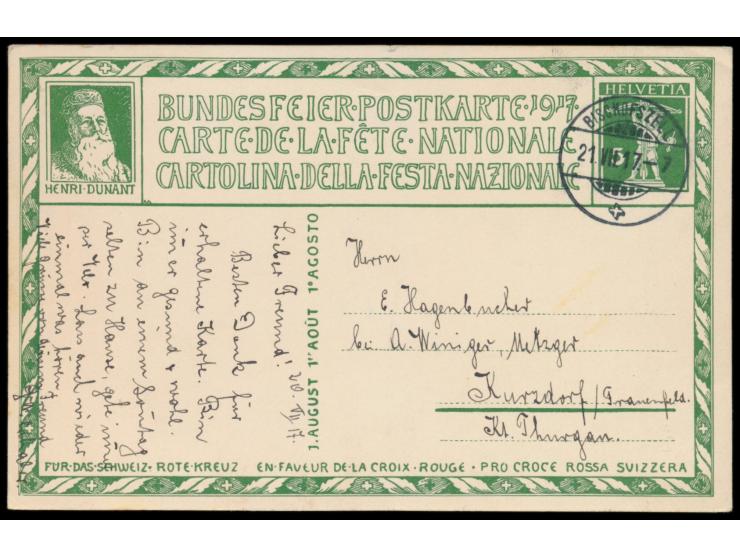 BUNDESFEIER·POSTKARTE·1917·
CARTE·DE·LA·FÊTE·NATIONALE
CARTOLINA·DELLA·FESTA·NAZIONALE
HENRI·DUNANT
HELVETIA
5
BISCHOFSZELL
21.VII.17–7
1. AUGUST 1ER AOÛT 1º AGOSTO
20. VII 17.
Lieber Freund!
Besten Dank für
erhaltene Karte. Bin
imer gesund & wohl.
Bin an einem Sontag
selten zu Hause, gehe imer
per Velo. Lass auch wieder
einmal was hören
Freund
Herrn
E. Hagenbucher
bei A. Winiger, Metzger
Kurzdorf / Frauenfeld.
Kt. Thurgau.
FÜR·DAS·SCHWEIZ·ROTE·KREUZ EN·FAVEUR·DE·LA·CROIX·ROUGE·PRO CROCE ROSSA SVIZZERA